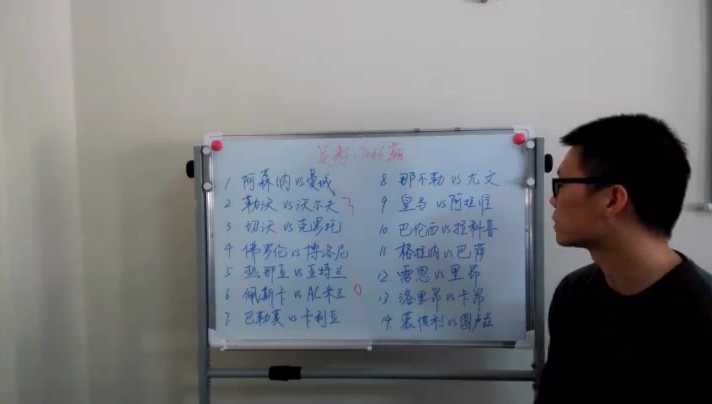 足彩:1746期
1. 阿森纳vs曼城
2 勒沃vs沃尔夫 3
3. 切沃vs克罗托
4 佛罗伦vs博洛尼
5 热那亚vs亚特兰
6 佩斯卡vsAC米兰 0
7. 巴勒莫vs卡利亚
8 那不勒vs尤文
9 皇马vs阿拉维
10 巴伦西vs拉科鲁
11 格拉纳vs巴萨
12. 雷恩vs里昂
13. 洛里昂vs卡昂
14. 莫彼利vs图卢兹